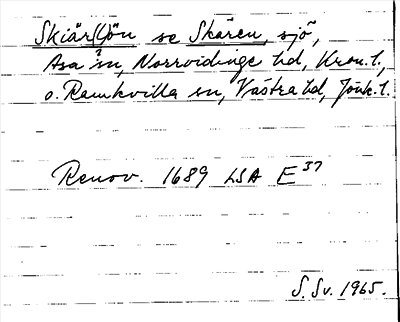 Skiärsjön se Skären, sjö,
Asa sn, Norrvidinge hd, Kron. l.,
o. Ramkvilla sn, Västra hd, Jönk. l.
Renov. 1689 LSA E 37
S. Sv. 1965.